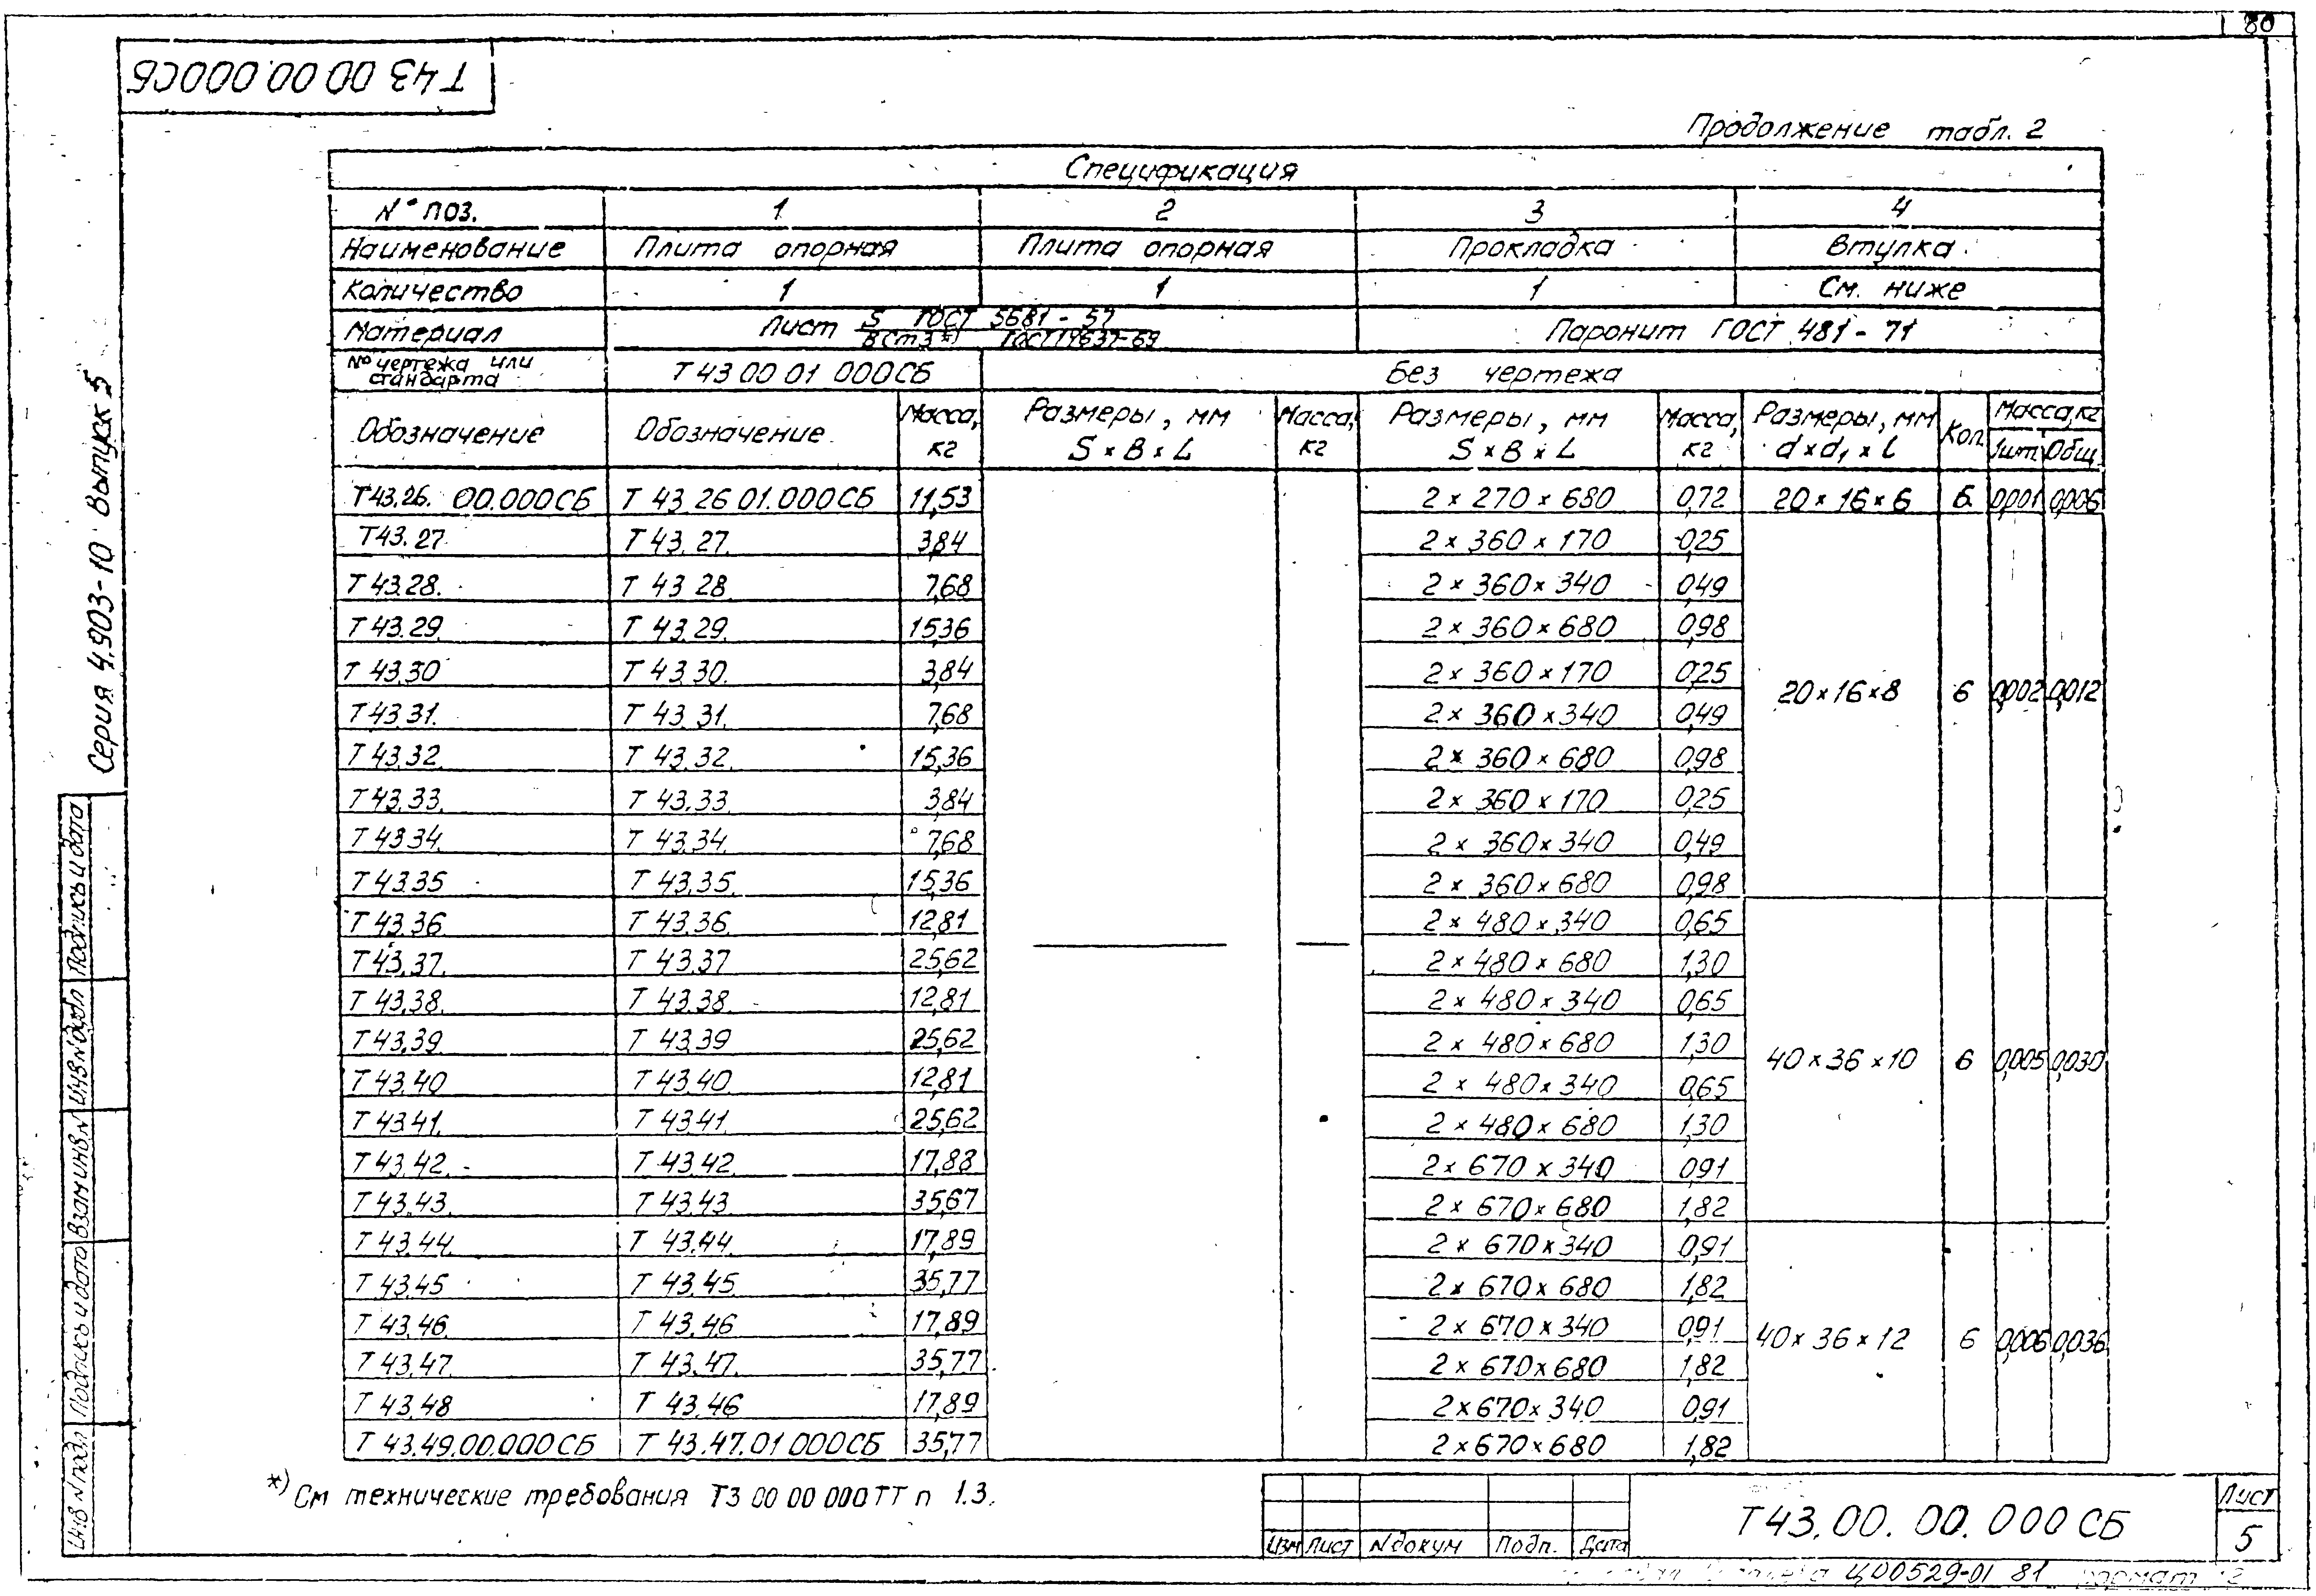 80
Т43 00 00.000СБ
Продолжение табл. 2
Спецификация
№ поз. 1 2 3 4
Наименование Плита опорная Плита опорная Прокладка Втулка
Количество 1 1 1 См. ниже
Материал Лист S ГОСТ 5681-57 / ВСт3*) ГОСТ 14637-69 Паронит ГОСТ 481-71
№ чертежа или стандарта Т43 00 01 000СБ Без чертежа
Обозначение Обозначение Масса, кг Размеры, мм S×B×L Масса, кг Размеры, мм S×B×L Масса, кг Размеры, мм d×d₁×l Кол. Масса, кг 1шт. Общ.
Т43.26. 00.000СБ Т 43.26 01.000СБ 11,53 2×270×680 0,72 20×16×6 6 0,001 0,006
Т43.27 Т 43.27. 3,84 2×360×170 0,25
Т 43.28. Т 43 28. 7,68 2×360×340 0,49
Т 43.29. Т 43.29. 15,36 2×360×680 0,98
Т 43.30 Т 43.30. 3,84 2×360×170 0,25 20×16×8 6 0,002 0,012
Т 43.31. Т 43.31. 7,68 2×360×340 0,49
Т 43.32. Т 43.32. 15,36 2×360×680 0,98
Т 43.33. Т 43.33. 3,84 2×360×170 0,25
Т 43 34. Т 43.34. 7,68 2×360×340 0,49
Т 43.35 Т 43.35. 15,36 2×360×680 0,98
Т 43.36 Т 43.36. 12,81 2×480×340 0,65
Т 43.37. Т 43.37 25,62 — — 2×480×680 1,30
Т 43.38. Т 43.38. 12,81 2×480×340 0,65
Т 43.39. Т 43.39 25,62 2×480×680 1,30 40×36×10 6 0,005 0,030
Т 43.40 Т 43.40. 12,81 2×480×340 0,65
Т 43.41. Т 43.41 25,62 2×480×680 1,30
Т 43.42. Т 43.42. 17,88 2×670×340 0,91
Т 43.43. Т 43.43 35,67 2×670×680 1,82
Т 43.44. Т 43.44. 17,89 2×670×340 0,91
Т 43.45 Т 43.45 35,77 2×670×680 1,82
Т 43.46. Т 43.46 17,89 2×670×340 0,91 40×36×12 6 0,006 0,036
Т 43.47. Т 43.47. 35,77 2×670×680 1,82
Т 43.48 Т 43.46 17,89 2×670×340 0,91
Т 43.49.00.000СБ Т 43.47.01 000СБ 35,77 2×670×680 1,82
*) См технические требования Т3 00 00 000ТТ п 1.3.
Изм Лист № докум Подп. Дата
Т43.00. 00. 000 СБ
Лист
5
Ц00529-01 81 формат 12
Серия 4.903-10 Выпуск 5
Инв № подл Подпись и дата Взам инв № Инв № дубл Подпись и дата